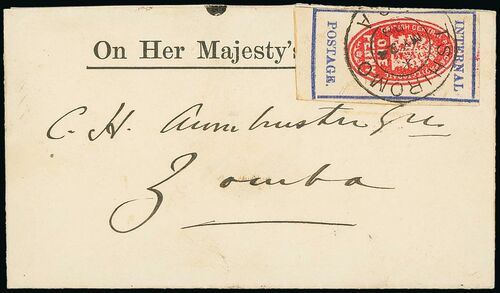 On Her Majesty's
INTERNAL
POSTAGE.
CHIROMO
C. H. Armbruster Esq
Zomba